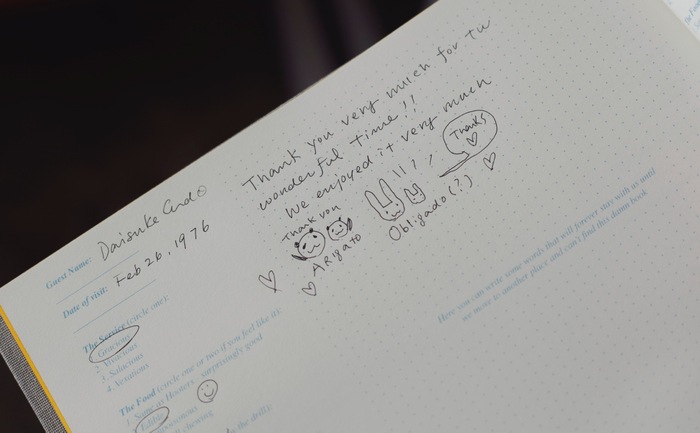 Thank you very much for
wonderful time!!
We enjoyed it very much
Thanks
Thank you
ARigato
Obligado(?)
Guest Name: Daisuke
Date of visit: Feb 26, 1976
The Service (circle one):
Gracious
2. Vivacious
3. Salacious
4. Vexatious
The Food (circle one or two if you feel like it):
1. Same as Hooters - surprisingly good
Edible
chewing
the drill):
Here you can write some words that will forever stay with us until
we move to another place and can't find this damn book